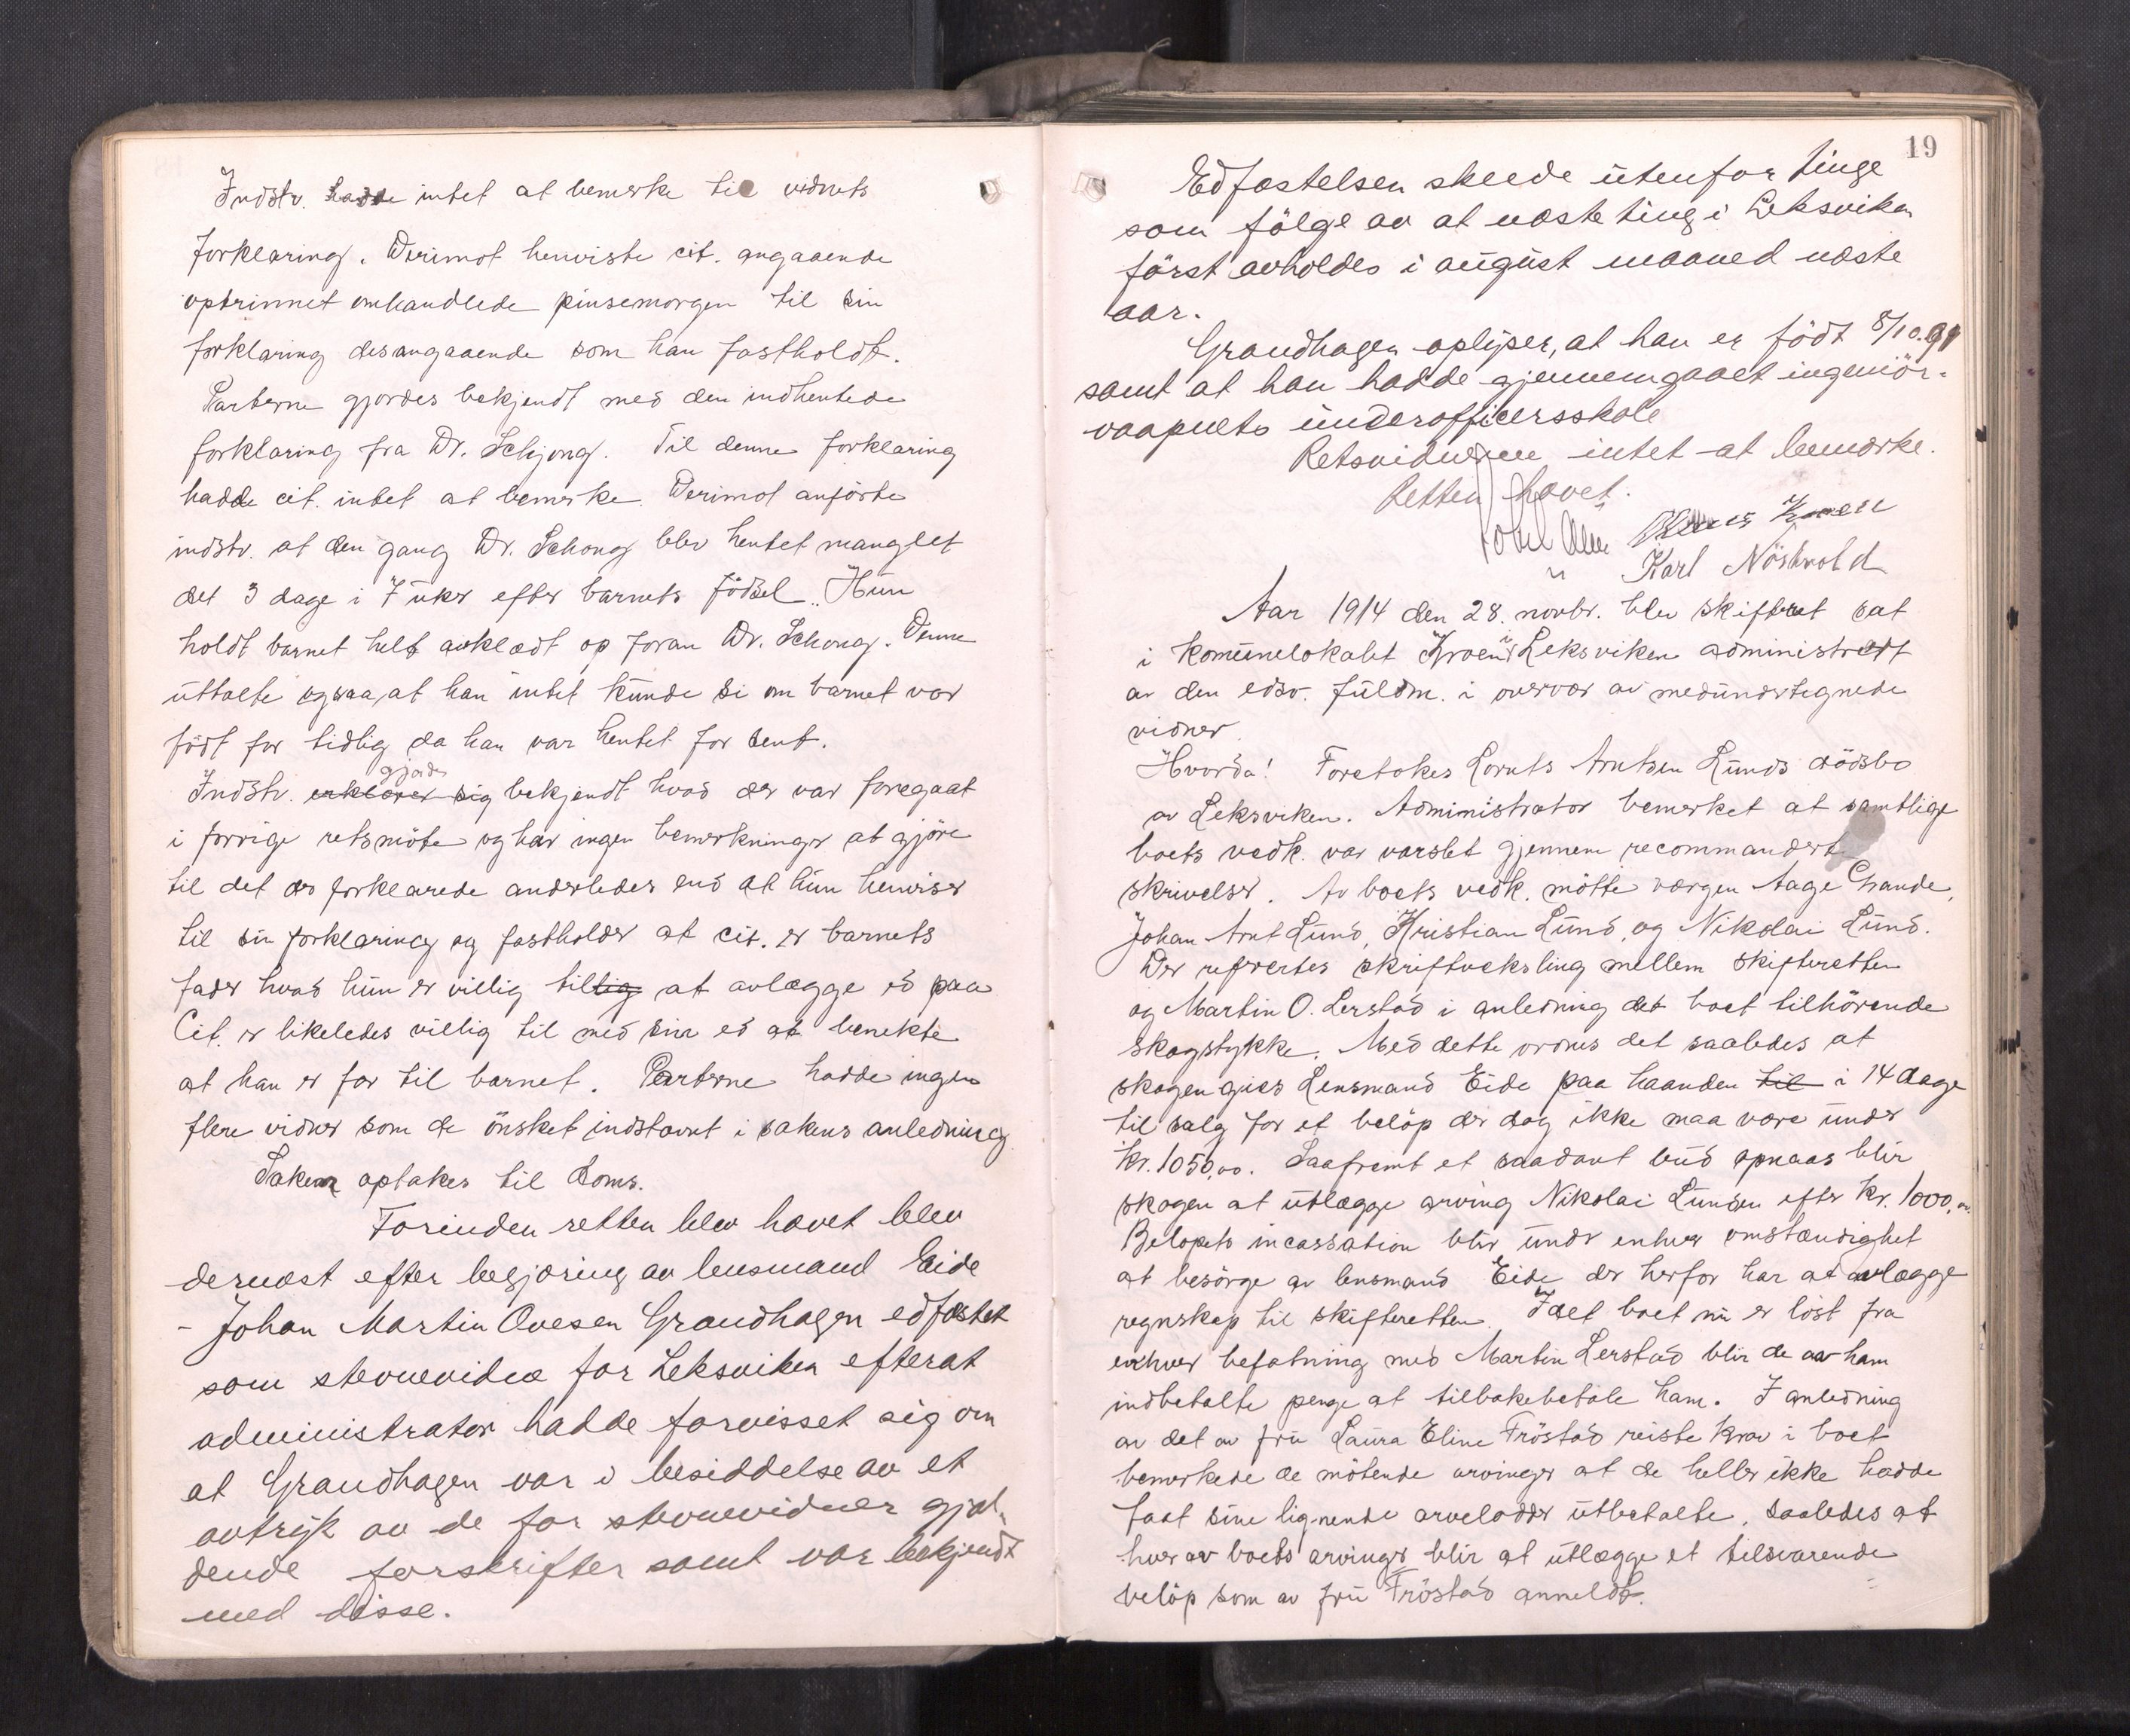 Indstv. hadde intet at bemerke til vidnets
forklaring. Derimot henviste cit. angaaende
optrinnet omhandlede pinsemorgen til sin
forklaring desangaaende som han fastholdt.
Parterne gjordes bekjendt med den indhentede
forklaring fra Dr. Schjong. Til denne forklaring
hadde cit. intet at bemerke. Derimot anførte
indstv. at den gang Dr. Schong blev hentet manglet
det 3 dage i 7 uker efter barnets födsel. Hun
holdt barnet helt avklædt op foran Dr. Schong. Denne
uttalte ogsaa, at han intet kunde si om barnet var
födt for tidlig da han var hentet for sent.
Indstv. erklærer sig gjordes bekjendt hvad der var foregaat
i forrige retsmöte og har ingen bemerkninger at gjöre
til det der forklarede anderledes end at hun henviser
til sin forklaring og fastholder at cit. er barnets
fader hvad hun er villig tillig at avlægge ed paa
Cit. er likeledes villig til med sin ed at benekte
at han er far til barnet. Parterne hadde ingen
flere vidner som de önsket indstævnt i sakens anledning
Saken optakes til doms.
Forinden retten blev hævet blev
dernæst efter begjæring av lensmand Eide
- Johan Martin Ovesen Grandhagen edfæstet
som stevnevidne for Leksviken efterat
administrator hadde forvisset sig om
at Grandhagen var i besiddelse av et
avtryk av de for stevnevidner gjæl-
dende forskrifter samt var bekjendt
med disse.
19
Edfæstelsen skeede utenfor tinge
som fölge av at næste ting i Leksviken
först avholdes i august maaned næste
aar.
Grandhagen oplyser, at han er födt 8/10.91
samt at han hadde gjennemgaaet ingeniör-
vaapnets underofficersskole
Retsvidnerne intet at bemærke.
Retten hævet.
Karl Nöstvold
Aar 1914 den 28. novbr. blev skifteret sat
i komunelokalet Kroen i Leksviken administrert
av den edsv. fuldm. i overvær av medundertegnede
vidner.
Hvorda! Foretokes Lornts Arntsen Lunds dödsbo
av Leksviken. Administrator bemerket at samtlige
boets vedk. var varslet gjennem recommandert
skrivelser. Av boets vedk. mötte værgen Aage Chande,
Johan Arnt Lund, Kristian Lund, og Nikolai Lund.
Der referertes skriftveksling mellem skifteretten
og Martin O. Lerstad i anledning det boet tilhörende
skogstykke. Med dette ordnes det saaledes at
skogen gives Lensmand Eide paa haanden til i 14 dage
til salg for et belöp der dog ikke maa være under
kr. 1050,00. Saafremt et saadant bud opnaas blir
skogen at utlægge arving Nikolai Lunden efter kr. 1000,00.
Belöpets incassation blir under enhver omstændighet
at besörge av lensmand Eide der herfor har at avlægge
regnskap til skifteretten. Idet boet nu er löst fra
enhver befatning med Martin Lerstad blir de av ham
indbetalte penge at tilbakebetale ham. I anledning
av det av fru Laura Eline Fröstad reiste krav i boet
bemerkede de mötende arvinger at de heller ikke hadde
faat sine lignende arvelodder utbetalte, saaledes at
hver av boets arvinger blir at utlægge et tilsvarende
belöp som av fru Fröstad anmeldt.